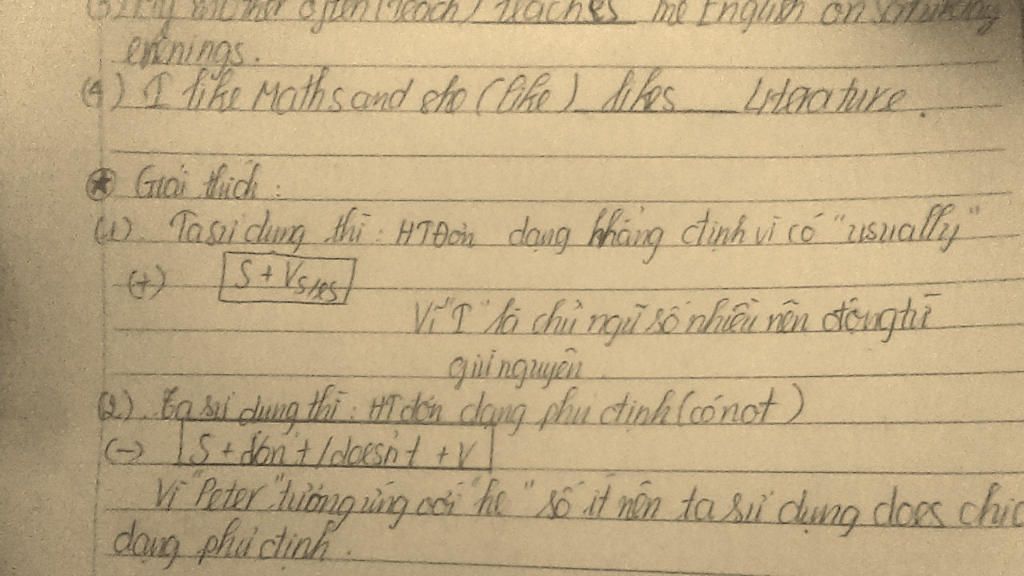 (3) My mother often (teach) teaches me English on Saturday
evenings.
(4) I like Maths and she (like) likes Literature.
Giải thích:
(1). Ta sử dụng thì: HTĐơn dạng khẳng định vì có "usually"
(+) S + Vs/es
Vì "I" là chủ ngữ số nhiều nên động từ
giữ nguyên.
(2). Ta sử dụng thì: HT đơn dạng phủ định (có not)
(-) S + don't / doesn't + V
Vì "Peter" tương ứng với "he" số ít nên ta sử dụng does
dạng phủ định.